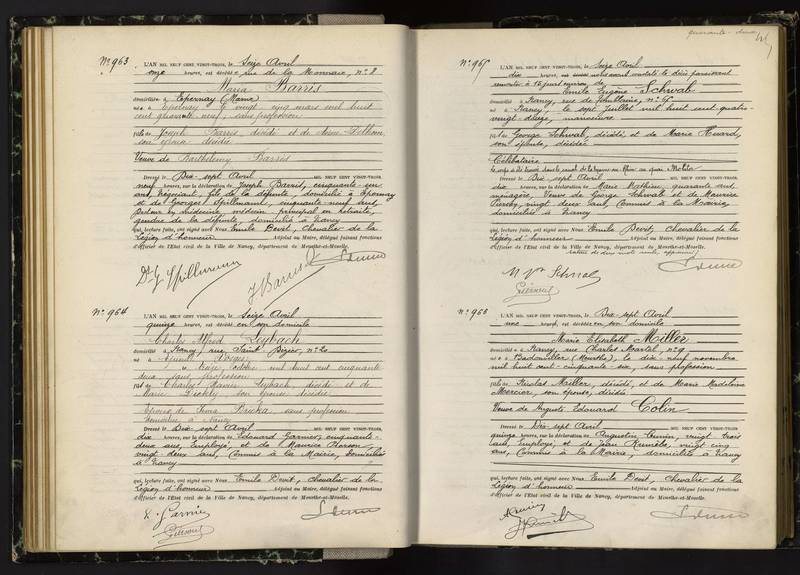 quarante-deux
N° 963
L'AN MIL NEUF CENT VINGT-TROIS, le Seize Avril
onze heures, est décédée rue de la Monnaie, n° 8
Maria Barris
domiciliée à Epernay (Marne)
née à Epernay le vingt cinq mars mil huit
cent quarante neuf, sans profession
fille de Joseph Barris, décédé et de
son épouse décédée
Veuve de Barthélemy Barris
Dressé le Dix-sept Avril MIL NEUF CENT VINGT-TROIS,
neuf heures, sur la déclaration de Joseph Barris, cinquante-un
ans, Négociant, fils de la défunte, domicilié à Epernay
et de Georges Spillmann, cinquante neuf ans,
Docteur en médecine, médecin principal en retraite,
gendre de la défunte, domicilié à Nancy
qui, lecture faite, ont signé avec Nous Emile Devit, Chevalier de la
Légion d'honneur Adjoint au Maire, délégué faisant fonctions
d'Officier de l'Etat civil de la Ville de Nancy, département de Meurthe-et-Moselle.
Dr G Spillmann
J Barris
N° 964
L'AN MIL NEUF CENT VINGT-TROIS, le Seize Avril
quinze heures, est décédé en son domicile
Charles Alfred Leybach
domicilié à Nancy, rue Saint Dizier, n° 20
né à Vosges
le treize Octobre mil huit cent cinquante
deux sans profession
fils de Charles Xavier Leybach, décédé et de
Marie son épouse décédée
Epoux de Irma Bricka, sans profession
domiciliée à Nancy
Dressé le Dix-sept Avril MIL NEUF CENT VINGT-TROIS,
dix heures, sur la déclaration de Edouard Garnier, cinquante-
deux ans, Employé, et de Maurice
vingt deux ans, Commis à la Mairie, domiciliés
à Nancy
qui, lecture faite, ont signé avec Nous Emile Devit, Chevalier de la
Légion d'honneur Adjoint au Maire, délégué faisant fonctions
d'Officier de l'Etat civil de la Ville de Nancy, département de Meurthe-et-Moselle.
E. Garnier
N° 965
L'AN MIL NEUF CENT VINGT-TROIS, le Seize Avril
dix heures, est constaté le décès paraissant
remonter à 15 jours environ de
Emile Eugène Schwab
domicilié à Nancy, rue de n° 45
né à Nancy le sept Juillet mil huit cent quatre-
vingt-dix, manœuvre
fils de George Schwab, décédé, et de Marie Huard,
son épouse, décédée
Célibataire
Dressé le Dix-sept Avril MIL NEUF CENT VINGT-TROIS,
dix heures, sur la déclaration de Marie Mathieu, quarante ans,
ménagère, Veuve de George Schwab et de Maurice
vingt deux ans, Commis à la Mairie,
domiciliés à Nancy
qui, lecture faite, ont signé avec Nous Emile Devit, Chevalier de la
Légion d'honneur Adjoint au Maire, délégué faisant fonctions
d'Officier de l'Etat civil de la Ville de Nancy, département de Meurthe-et-Moselle.
M Vve Schwab
N° 966
L'AN MIL NEUF CENT VINGT-TROIS, le Dix-sept Avril
une heure, est décédée en son domicile
Marie Elisabeth Miller
domiciliée à Nancy, rue Charles n° 9
née à Badonviller (Meurthe), le dix-neuf novembre
mil huit cent-cinquante-six, sans profession
fille de Nicolas Miller, décédé, et de Marie Madeleine
Mercier, son épouse, décédée
Veuve de Auguste Edouard Colin
Dressé le Dix-sept Avril MIL NEUF CENT VINGT-TROIS,
quinze heures, sur la déclaration de Augustin vingt trois
ans, Employé, et de Jean vingt cinq
ans, Commis à la Mairie, domiciliés à Nancy
qui, lecture faite, ont signé avec Nous Emile Devit, Chevalier de la
Légion d'honneur Adjoint au Maire, délégué faisant fonctions
d'Officier de l'Etat civil de la Ville de Nancy, département de Meurthe-et-Moselle.